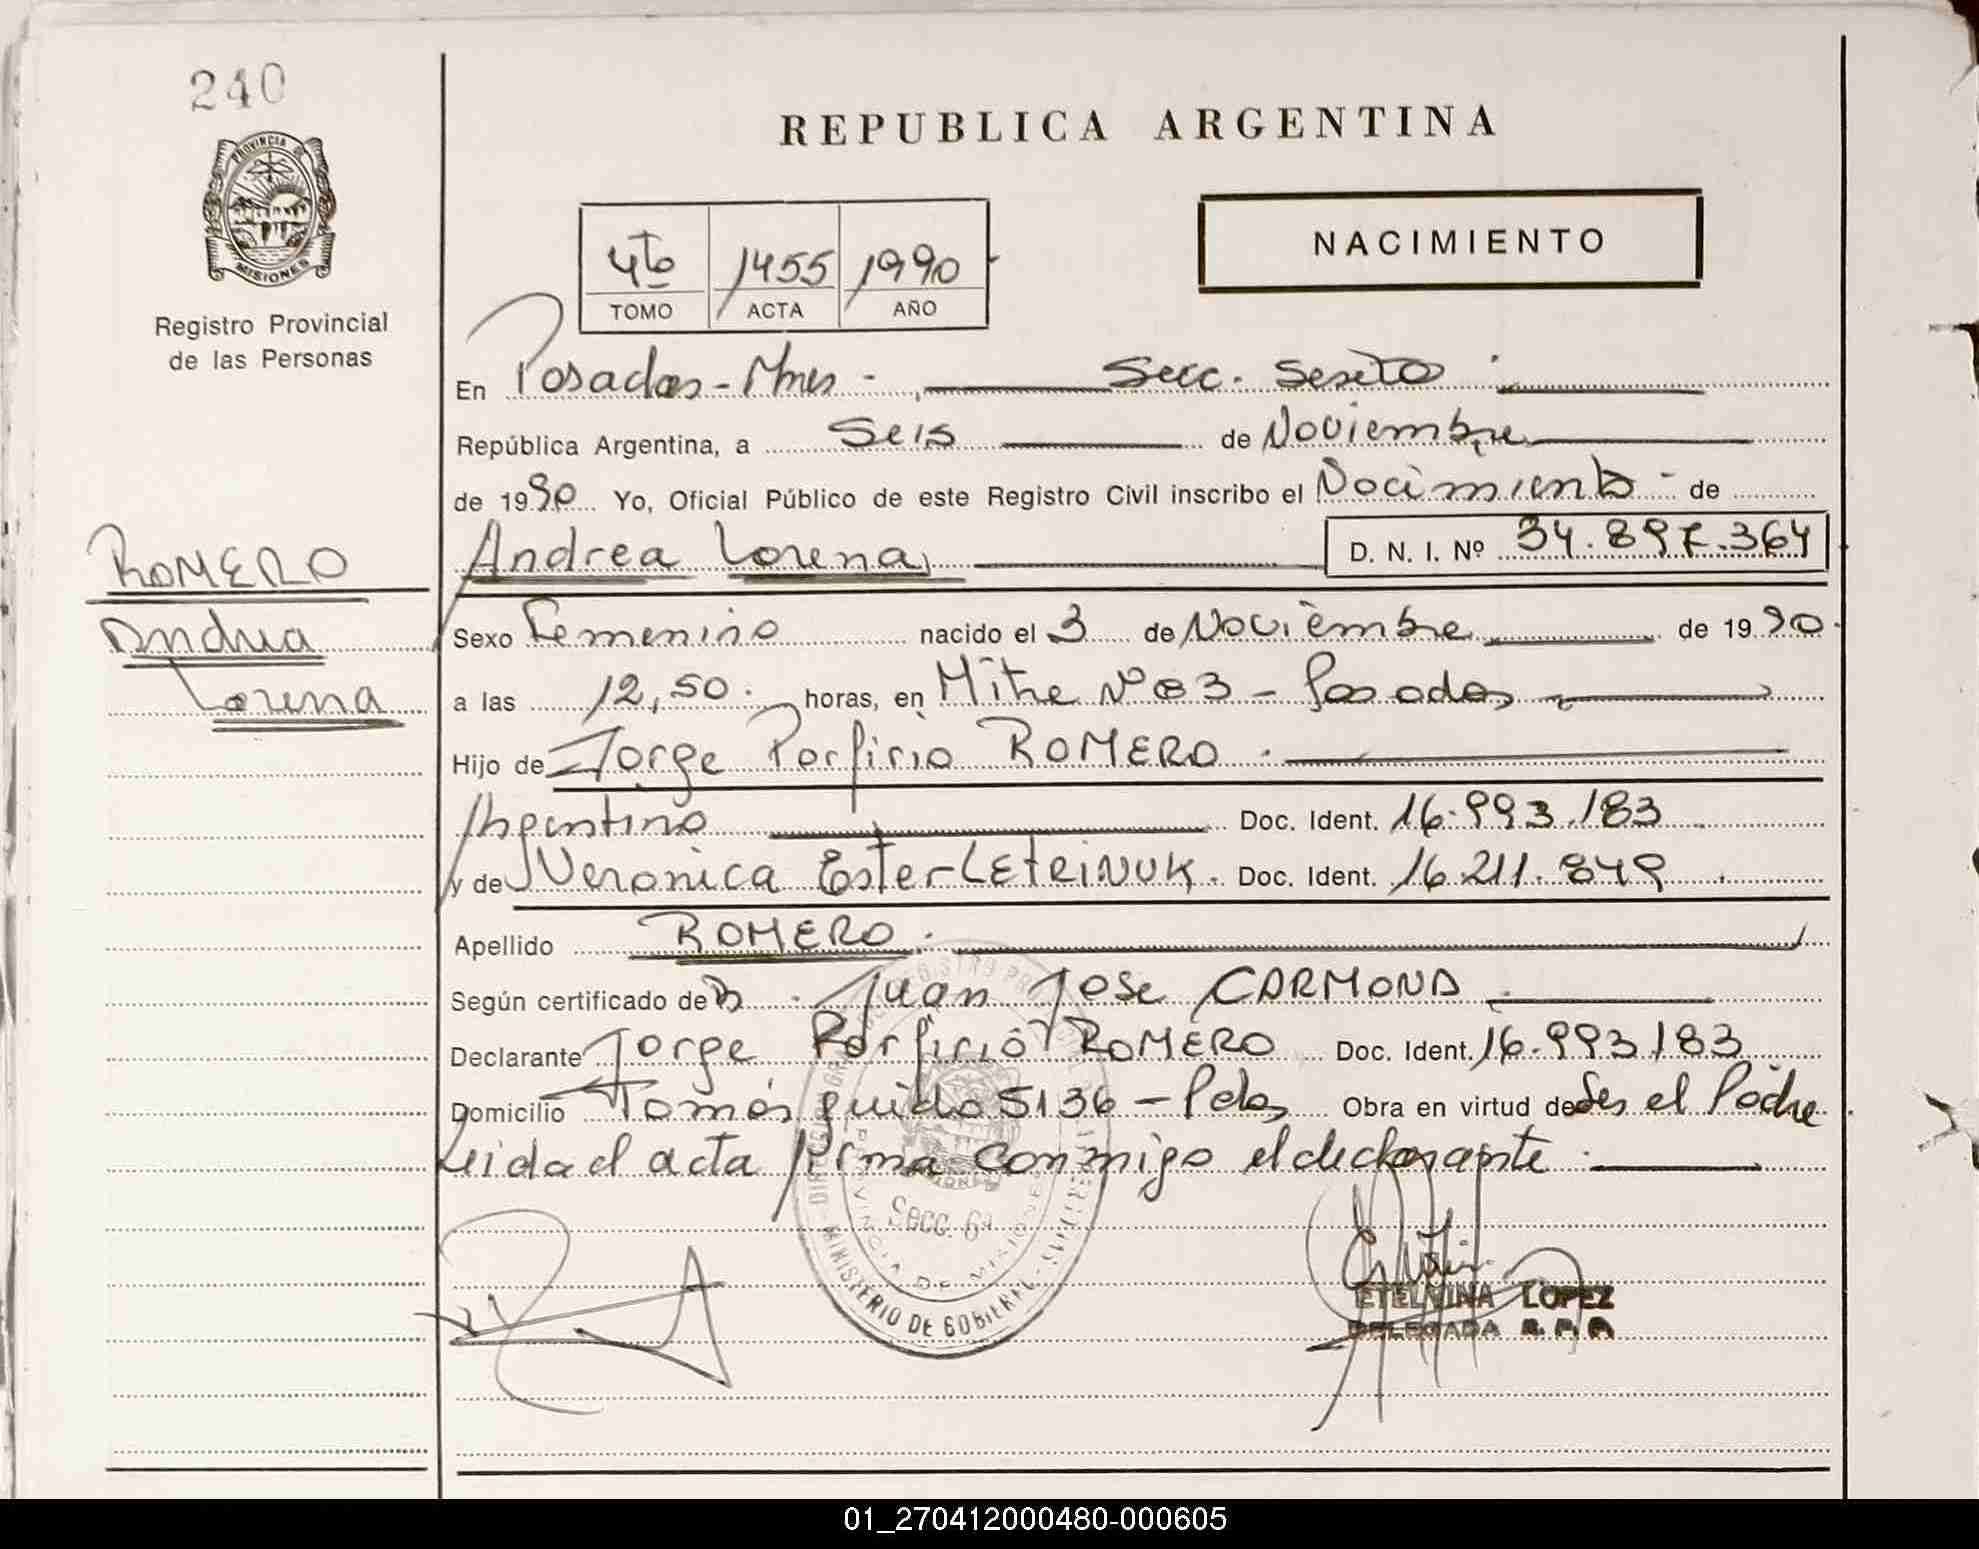 240
PROVINCIA DE
MISIONES
Registro Provincial
de las Personas
ROMERO
Andrea
Lorena
REPUBLICA ARGENTINA
4to 1455 1990
TOMO ACTA AÑO
NACIMIENTO
En Posadas - Mnes - Secc. Sexta
República Argentina, a Seis de Noviembre
de 1990 Yo, Oficial Público de este Registro Civil inscribo el Nacimiento - de
Andrea Lorena D. N. I. Nº 34.897.364
Sexo Femenino nacido el 3 de Noviembre de 1990.
a las 12,50. horas, en Mitre Nº 83 - Posadas
Hijo de Jorge Porfirio ROMERO.
Argentino Doc. Ident. 16.993.183
y de Veronica Ester LETRINUK. Doc. Ident. 16.211.849
Apellido ROMERO.
Según certificado de Juan Jose CARMONA
Declarante Jorge Porfirio ROMERO Doc. Ident. 16.993.183
Domicilio Tomás guido 5136 - Pdas Obra en virtud de Ser el Padre
Leida el acta firma conmigo el declarante.
Secc. 6ª
PROVINCIA DE MISIONES
MINISTERIO DE GOBIERNO
ETELVINA LOPEZ
DELEGADA R. P. P.
01_270412000480-000605